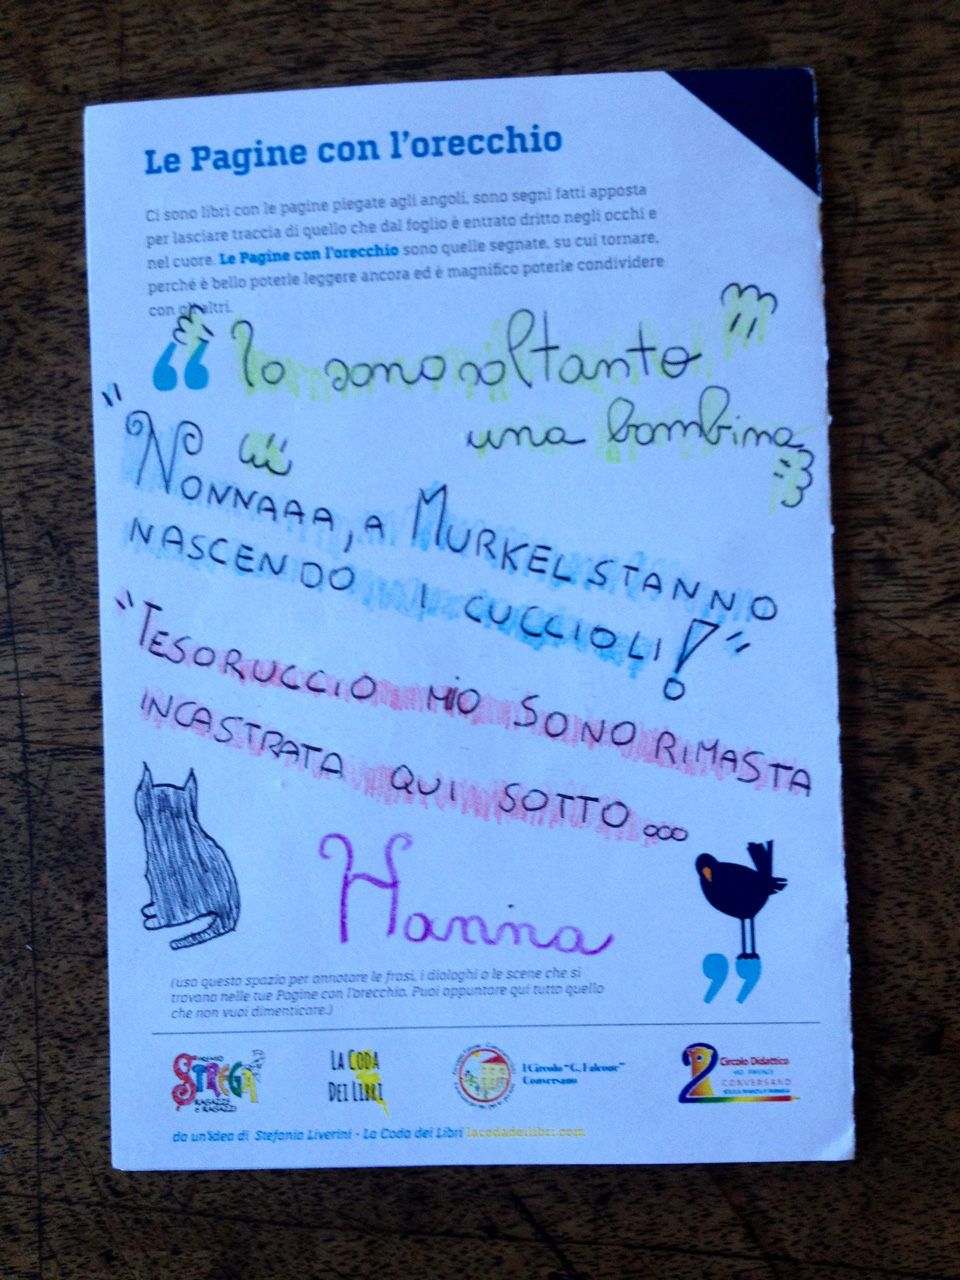 Le Pagine con l'orecchio
Ci sono libri con le pagine piegate agli angoli, sono segni fatti apposta
per lasciare traccia di quello che dal foglio è entrato dritto negli occhi e
nel cuore. Le Pagine con l'orecchio sono quelle segnate, su cui tornare,
perché è bello poterle leggere ancora ed è magnifico poterle condividere
con gli altri.
“ Io sono soltanto
una bambina
"NONNAAA, A MURKEL STANNO
NASCENDO I CUCCIOLI!"
"TESORUCCIO MIO SONO RIMASTA
INCASTRATA QUI SOTTO...
Hanna
”
(usa questo spazio per annotare le frasi, i dialoghi o le scene che si
trovano nelle tue Pagine con l'orecchio. Puoi appuntare qui tutto quello
che non vuoi dimenticare.)
PREMIO
STREGA
RAGAZZE
E RAGAZZI
LA CODA
DEI LIBRI
I Circolo "G. Falcone"
Conversano
2 Circolo Didattico
VIA FIRENZE
CONVERSANO
da un'idea di Stefania Liverini - La Coda dei Libri lacodadeilibri.com